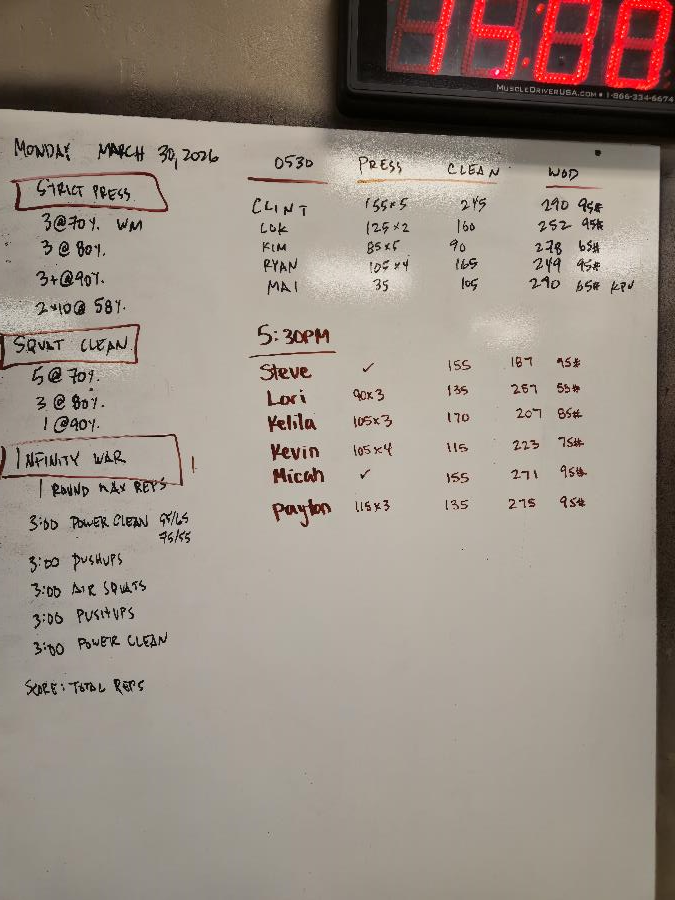 15:00
MUSCLEDRIVERUSA.COM • 1-866-334-6674
MONDAY MARCH 30, 2026
STRICT PRESS
3@70% WM
3@80%
3+@90%
2x10@58%
SQUAT CLEAN
5@70%
3@80%
1@90%
INFINITY WAR
1 ROUND MAX REPS
3:00 POWER CLEAN 95/65
75/55
3:00 PUSHUPS
3:00 AIR SQUATS
3:00 PUSHUPS
3:00 POWER CLEAN
SCORE: TOTAL REPS
0530 PRESS CLEAN WOD
CLINT 155x5 245 290 95#
125x2 160 252 95#
KIM 85x5 90 278 65#
RYAN 105x4 165 249 95#
MAI 35 105 290 65#
5:30PM
Steve ✓ 155 187 95#
Lori 90x3 135 257 55#
Kelila 105x3 170 207 85#
Kevin 105x4 115 223 75#
Micah ✓ 155 271 95#
Payton 115x3 135 275 95#